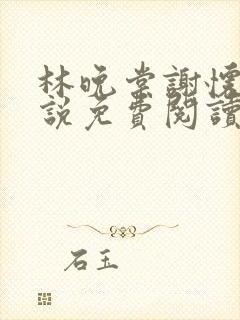 林晚棠謝懷
說免費閱讀
石玉